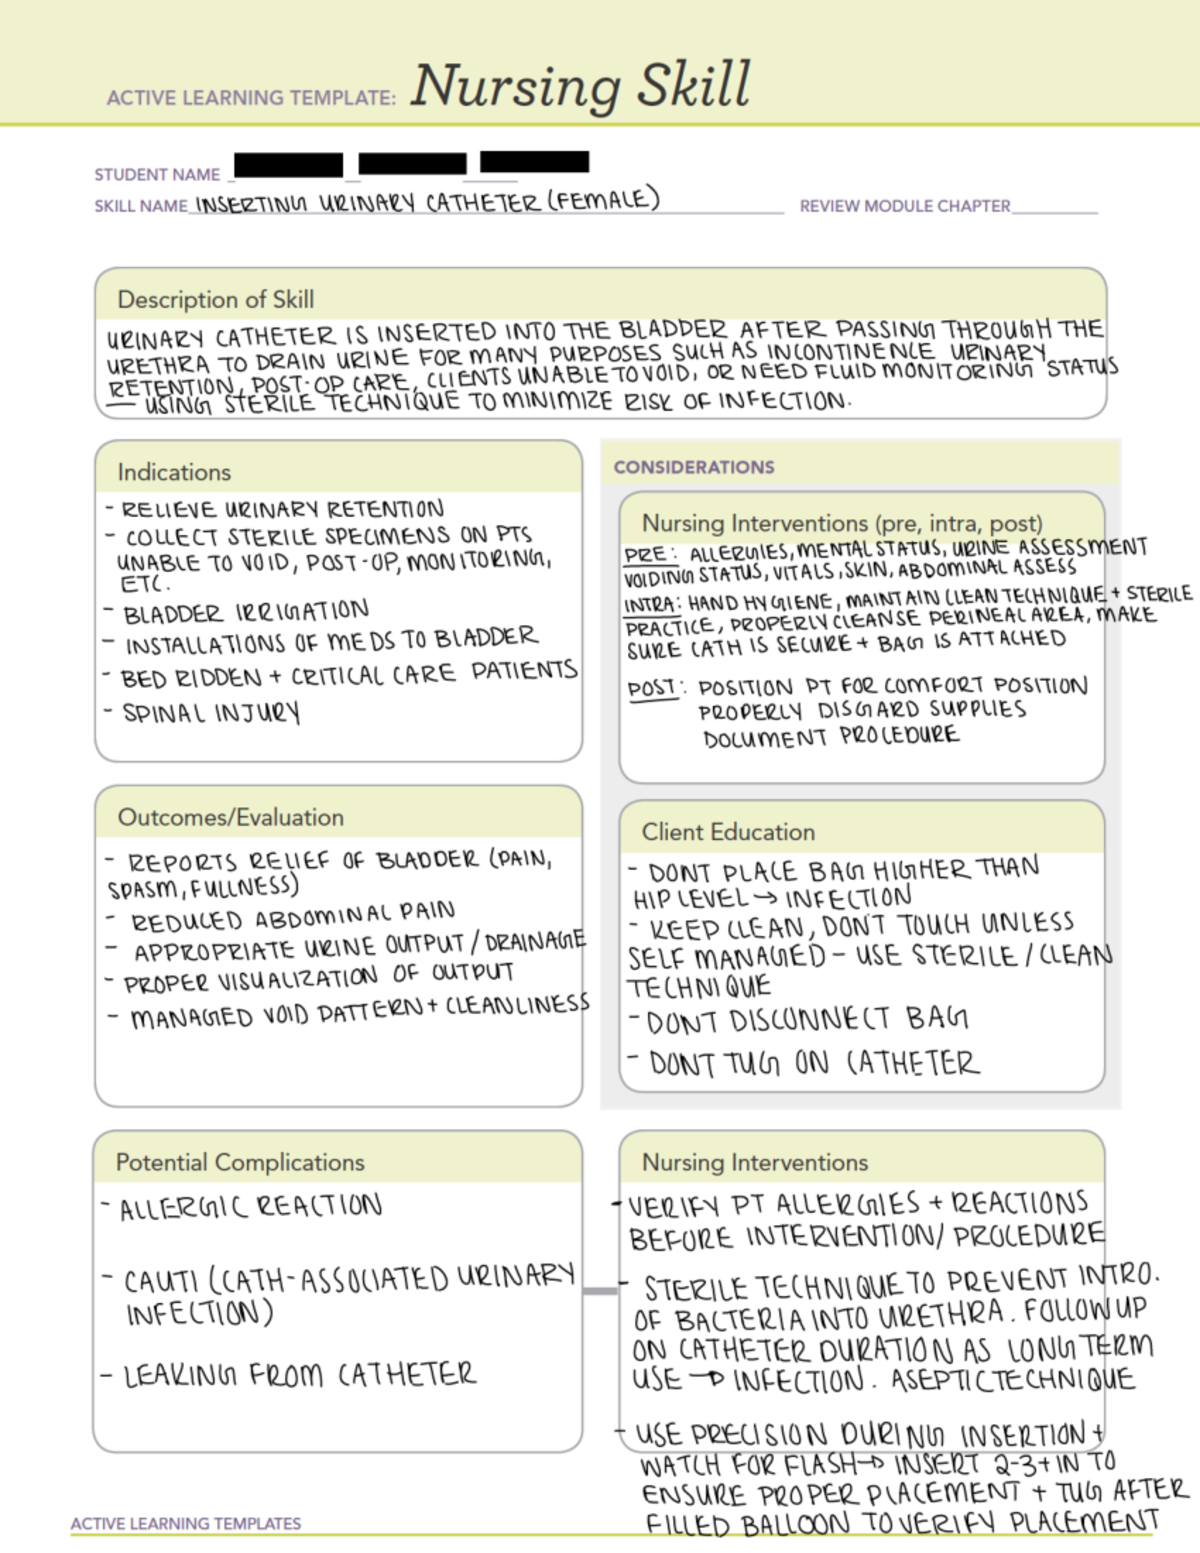 ACTIVE LEARNING TEMPLATE: Nursing Skill
STUDENT NAME
SKILL NAME INSERTING URINARY CATHETER (FEMALE) REVIEW MODULE CHAPTER
Description of Skill
URINARY CATHETER IS INSERTED INTO THE BLADDER AFTER PASSING THROUGH THE
URETHRA TO DRAIN URINE FOR MANY PURPOSES SUCH AS INCONTINENCE URINARY
RETENTION, POST-OP CARE, CLIENTS UNABLE TO VOID, OR NEED FLUID MONITORING STATUS
— USING STERILE TECHNIQUE TO MINIMIZE RISK OF INFECTION.
Indications
- RELIEVE URINARY RETENTION
- COLLECT STERILE SPECIMENS ON PTS
UNABLE TO VOID, POST-OP, MONITORING,
ETC.
- BLADDER IRRIGATION
- INSTALLATIONS OF MEDS TO BLADDER
- BED RIDDEN + CRITICAL CARE PATIENTS
- SPINAL INJURY
CONSIDERATIONS
Nursing Interventions (pre, intra, post)
PRE: ALLERGIES, MENTAL STATUS, URINE ASSESSMENT
VOIDING STATUS, VITALS, SKIN, ABDOMINAL ASSESS
INTRA: HAND HYGIENE, MAINTAIN CLEAN TECHNIQUE + STERILE
PRACTICE, PROPERLY CLEANSE PERINEAL AREA, MAKE
SURE CATH IS SECURE + BAG IS ATTACHED
POST: POSITION PT FOR COMFORT POSITION
PROPERLY DISGARD SUPPLIES
DOCUMENT PROCEDURE
Outcomes/Evaluation
- REPORTS RELIEF OF BLADDER (PAIN,
SPASM, FULLNESS)
- REDUCED ABDOMINAL PAIN
- APPROPRIATE URINE OUTPUT / DRAINAGE
- PROPER VISUALIZATION OF OUTPUT
- MANAGED VOID PATTERN + CLEANLINESS
Client Education
- DONT PLACE BAG HIGHER THAN
HIP LEVEL → INFECTION
- KEEP CLEAN, DON'T TOUCH UNLESS
SELF MANAGED - USE STERILE / CLEAN
TECHNIQUE
- DONT DISCONNECT BAG
- DONT TUG ON CATHETER
Potential Complications
- ALLERGIC REACTION
- CAUTI (CATH-ASSOCIATED URINARY
INFECTION)
- LEAKING FROM CATHETER
Nursing Interventions
- VERIFY PT ALLERGIES + REACTIONS
BEFORE INTERVENTION/ PROCEDURE
- STERILE TECHNIQUE TO PREVENT INTRO.
OF BACTERIA INTO URETHRA. FOLLOW UP
ON CATHETER DURATION AS LONG TERM
USE → INFECTION. ASEPTIC TECHNIQUE
- USE PRECISION DURING INSERTION +
WATCH FOR FLASH → INSERT 2-3+ IN TO
ENSURE PROPER PLACEMENT + TUG AFTER
FILLED BALLOON TO VERIFY PLACEMENT
ACTIVE LEARNING TEMPLATES